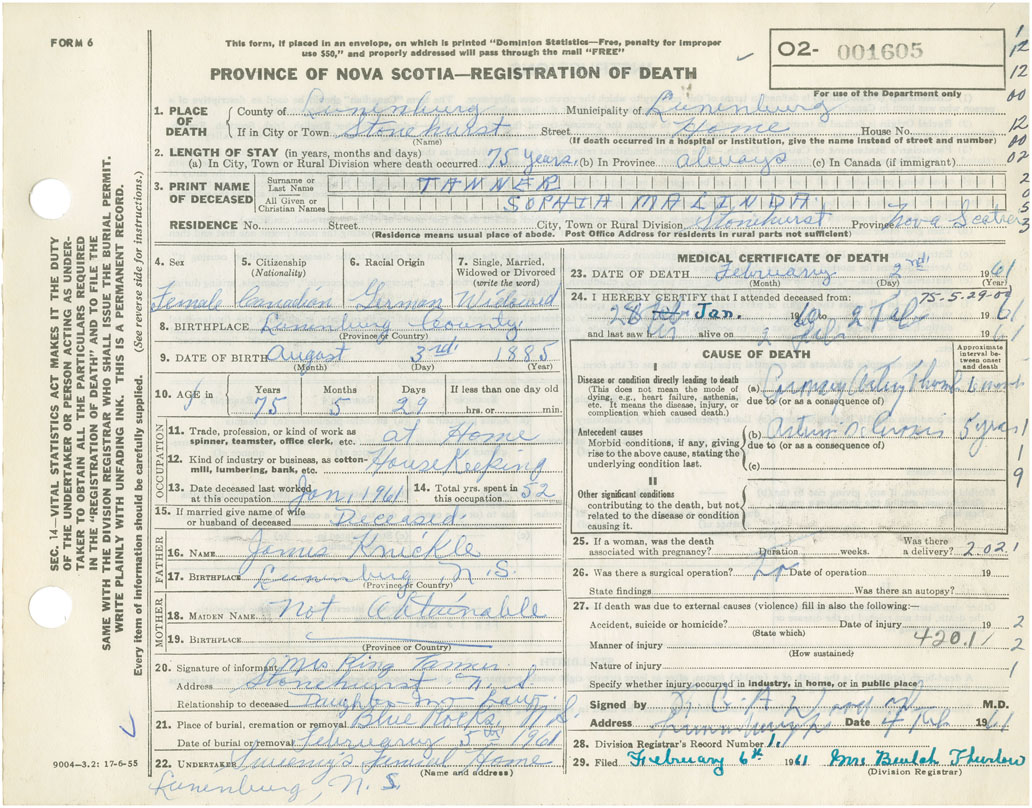 FORM 6
This form, if placed in an envelope, on which is printed "Dominion Statistics—Free, penalty for improper
use $50," and properly addressed will pass through the mail "FREE"
PROVINCE OF NOVA SCOTIA—REGISTRATION OF DEATH
O2- 001605
For use of the Department only
1. PLACE OF DEATH
County of Lunenburg Municipality of Lunenburg
If in City or Town Stonehurst Street Home House No.
(Name) (If death occurred in a hospital or institution, give the name instead of street and number)
2. LENGTH OF STAY (in years, months and days)
(a) In City, Town or Rural Division where death occurred 75 years. (b) In Province always (c) In Canada (if immigrant)
3. PRINT NAME OF DECEASED
Surname or Last Name TANNER
All Given or Christian Names SOPHIA MALINDA
RESIDENCE No. Street City, Town or Rural Division Stonehurst Province Nova Scotia
(Residence means usual place of abode. Post Office Address for residents in rural parts not sufficient)
4. Sex Female
5. Citizenship (Nationality) Canadian
6. Racial Origin German
7. Single, Married, Widowed or Divorced (write the word) Widowed
8. BIRTHPLACE Lunenburg County
(Province or Country)
9. DATE OF BIRTH August 3rd 1885
(Month) (Day) (Year)
10. AGE in Years Months Days If less than one day old
75 5 29 hrs. or min.
OCCUPATION
11. Trade, profession, or kind of work as spinner, teamster, office clerk, etc. at Home
12. Kind of industry or business, as cotton-mill, lumbering, bank, etc. House Keeping
13. Date deceased last worked at this occupation Jan, 1961
14. Total yrs. spent in this occupation 52
15. If married give name of wife or husband of deceased Deceased.
FATHER
16. NAME James Knickle
17. BIRTHPLACE Lunenburg, N.S.
(Province or Country)
MOTHER
18. MAIDEN NAME Not Obtainable
19. BIRTHPLACE
(Province or Country)
20. Signature of informant Mrs King Tanner
Address Stonehurst N.S.
Relationship to deceased Daughter-In-Law
21. Place of burial, cremation or removal Blue Rocks, N.S.
Date of burial or removal February 5th 1961
22. UNDERTAKER Funeral Home
(Name and address)
Lunenburg, N.S.
9004—3.2: 17-6-55
MEDICAL CERTIFICATE OF DEATH
23. DATE OF DEATH February 2nd 1961
(Month) (Day) (Year)
75-5-29-00
24. I HEREBY CERTIFY that I attended deceased from:
28 Jan. 1960 to 2 Feb 1961
and last saw alive on 2 Feb 1961
CAUSE OF DEATH
Approximate interval between onset and death
I
Disease or condition directly leading to death
(This does not mean the mode of dying, e.g., heart failure, asthenia, etc. It means the disease, injury, or complication which caused death.)
(a)
due to (or as a consequence of)
Antecedent causes
Morbid conditions, if any, giving rise to the above cause, stating the underlying condition last.
(b) 5 years
due to (or as a consequence of)
(c)
II
Other significant conditions
contributing to the death, but not related to the disease or condition causing it.
25. If a woman, was the death associated with pregnancy? Duration weeks. Was there a delivery? 2021
26. Was there a surgical operation? Date of operation 19
State findings Was there an autopsy?
27. If death was due to external causes (violence) fill in also the following:—
Accident, suicide or homicide? Date of injury 19
(State which)
Manner of injury 420.1
(How sustained)
Nature of injury
Specify whether injury occurred in industry, in home, or in public place
Signed by M.D.
Address Date 4 Feb 1961
28. Division Registrar's Record Number 1.
29. Filed February 6th 1961 Mrs Beulah Thurlow
(Division Registrar)
SEC. 14—VITAL STATISTICS ACT MAKES IT THE DUTY
OF THE UNDERTAKER OR PERSON ACTING AS UNDER-
TAKER TO OBTAIN ALL THE PARTICULARS REQUIRED
IN THE "REGISTRATION OF DEATH" AND TO FILE THE
SAME WITH THE DIVISION REGISTRAR WHO SHALL ISSUE THE BURIAL PERMIT.
WRITE PLAINLY WITH UNFADING INK. THIS IS A PERMANENT RECORD.
Every item of information should be carefully supplied. (See reverse side for instructions.)
1
12
12
00
12
00
02
2
5
5
1
1
9
2
2
1